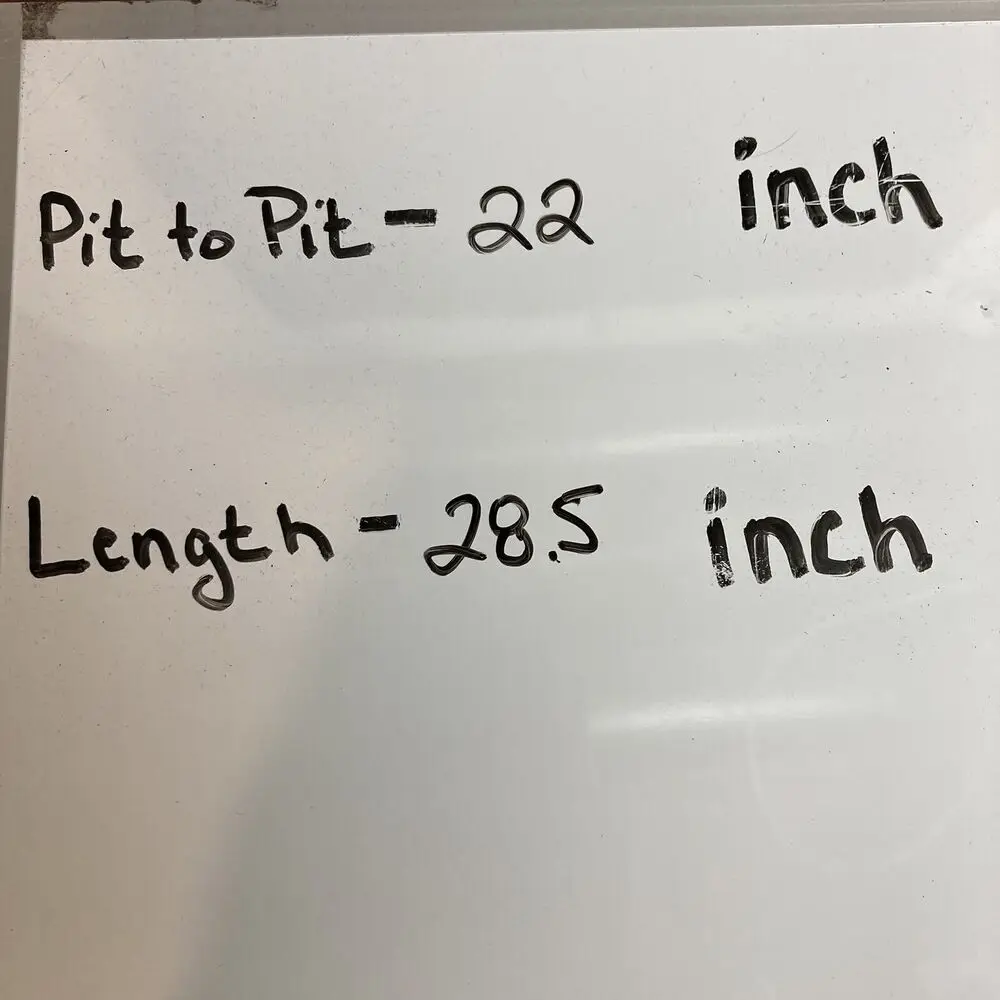 Pit to Pit - 22 inch
Length - 28.5 inch